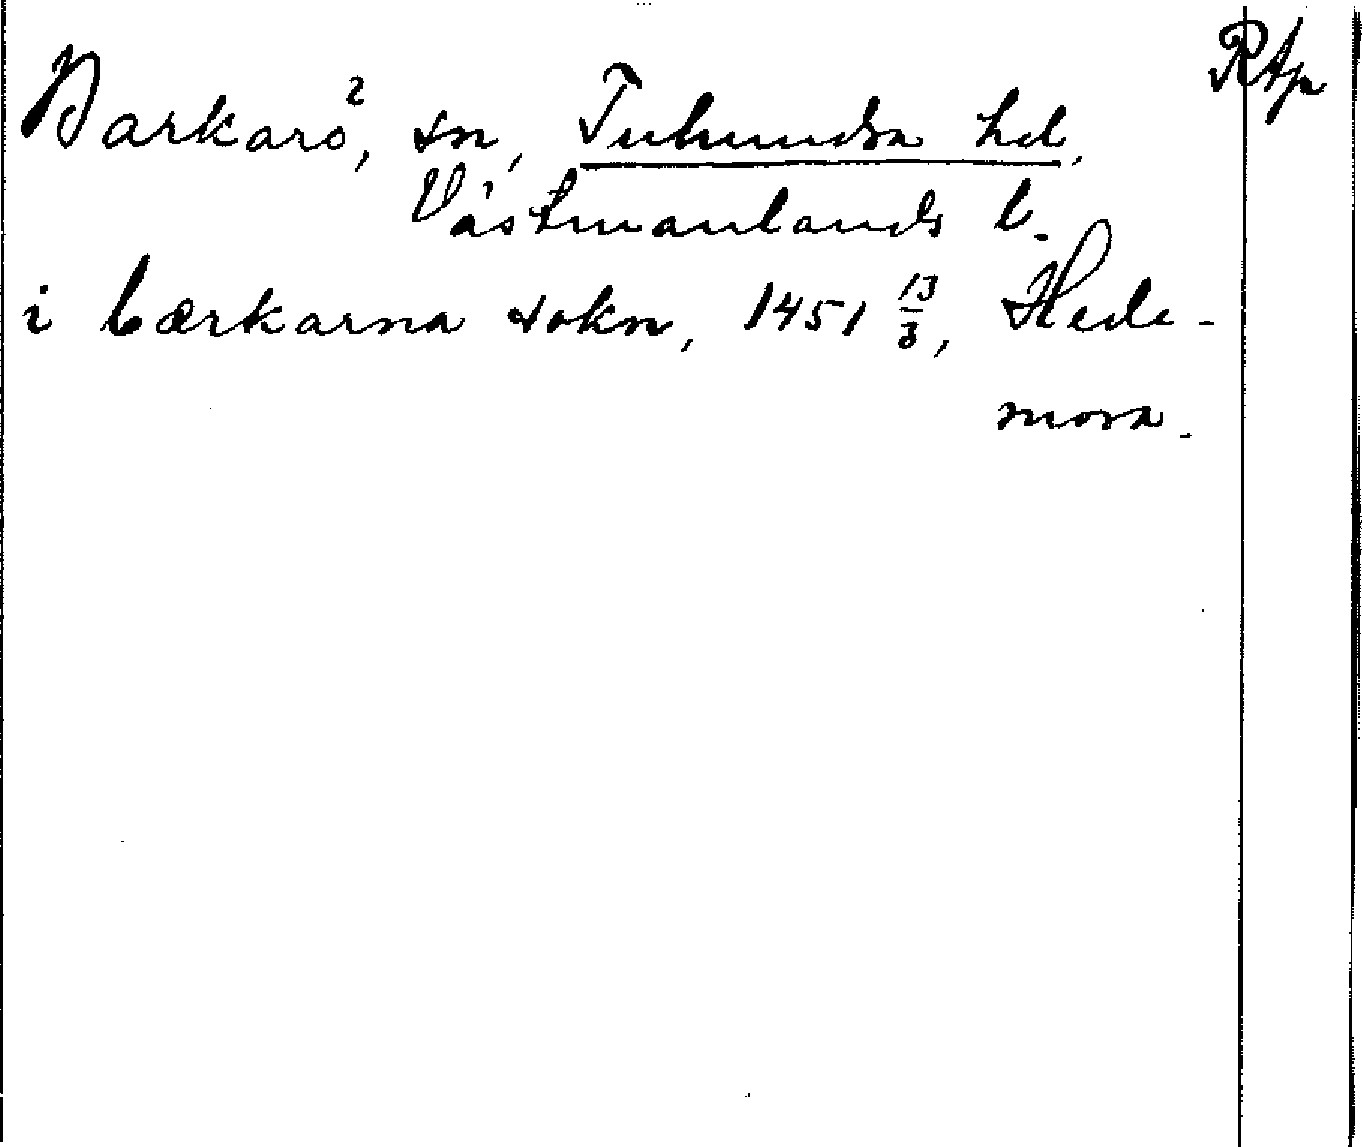 RAp
Barkarö², sn, Tuhundra hd,
Västmanlands l.
i bærkarna sokn, 1451 13/3, Hede-
mora.